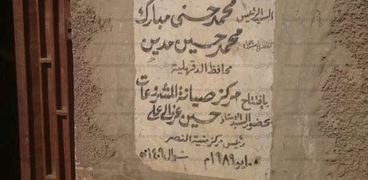 السيد الرئيس محمد حسني مبارك
محمد حسين مدين
محافظ الدقهلية
بافتتاح مركز صيانة المشروعات
بحضور السيد حسين غزالي علي
رئيس مركز منية النصر
مايو ١٩٨٩م شوال ١٤٠٩